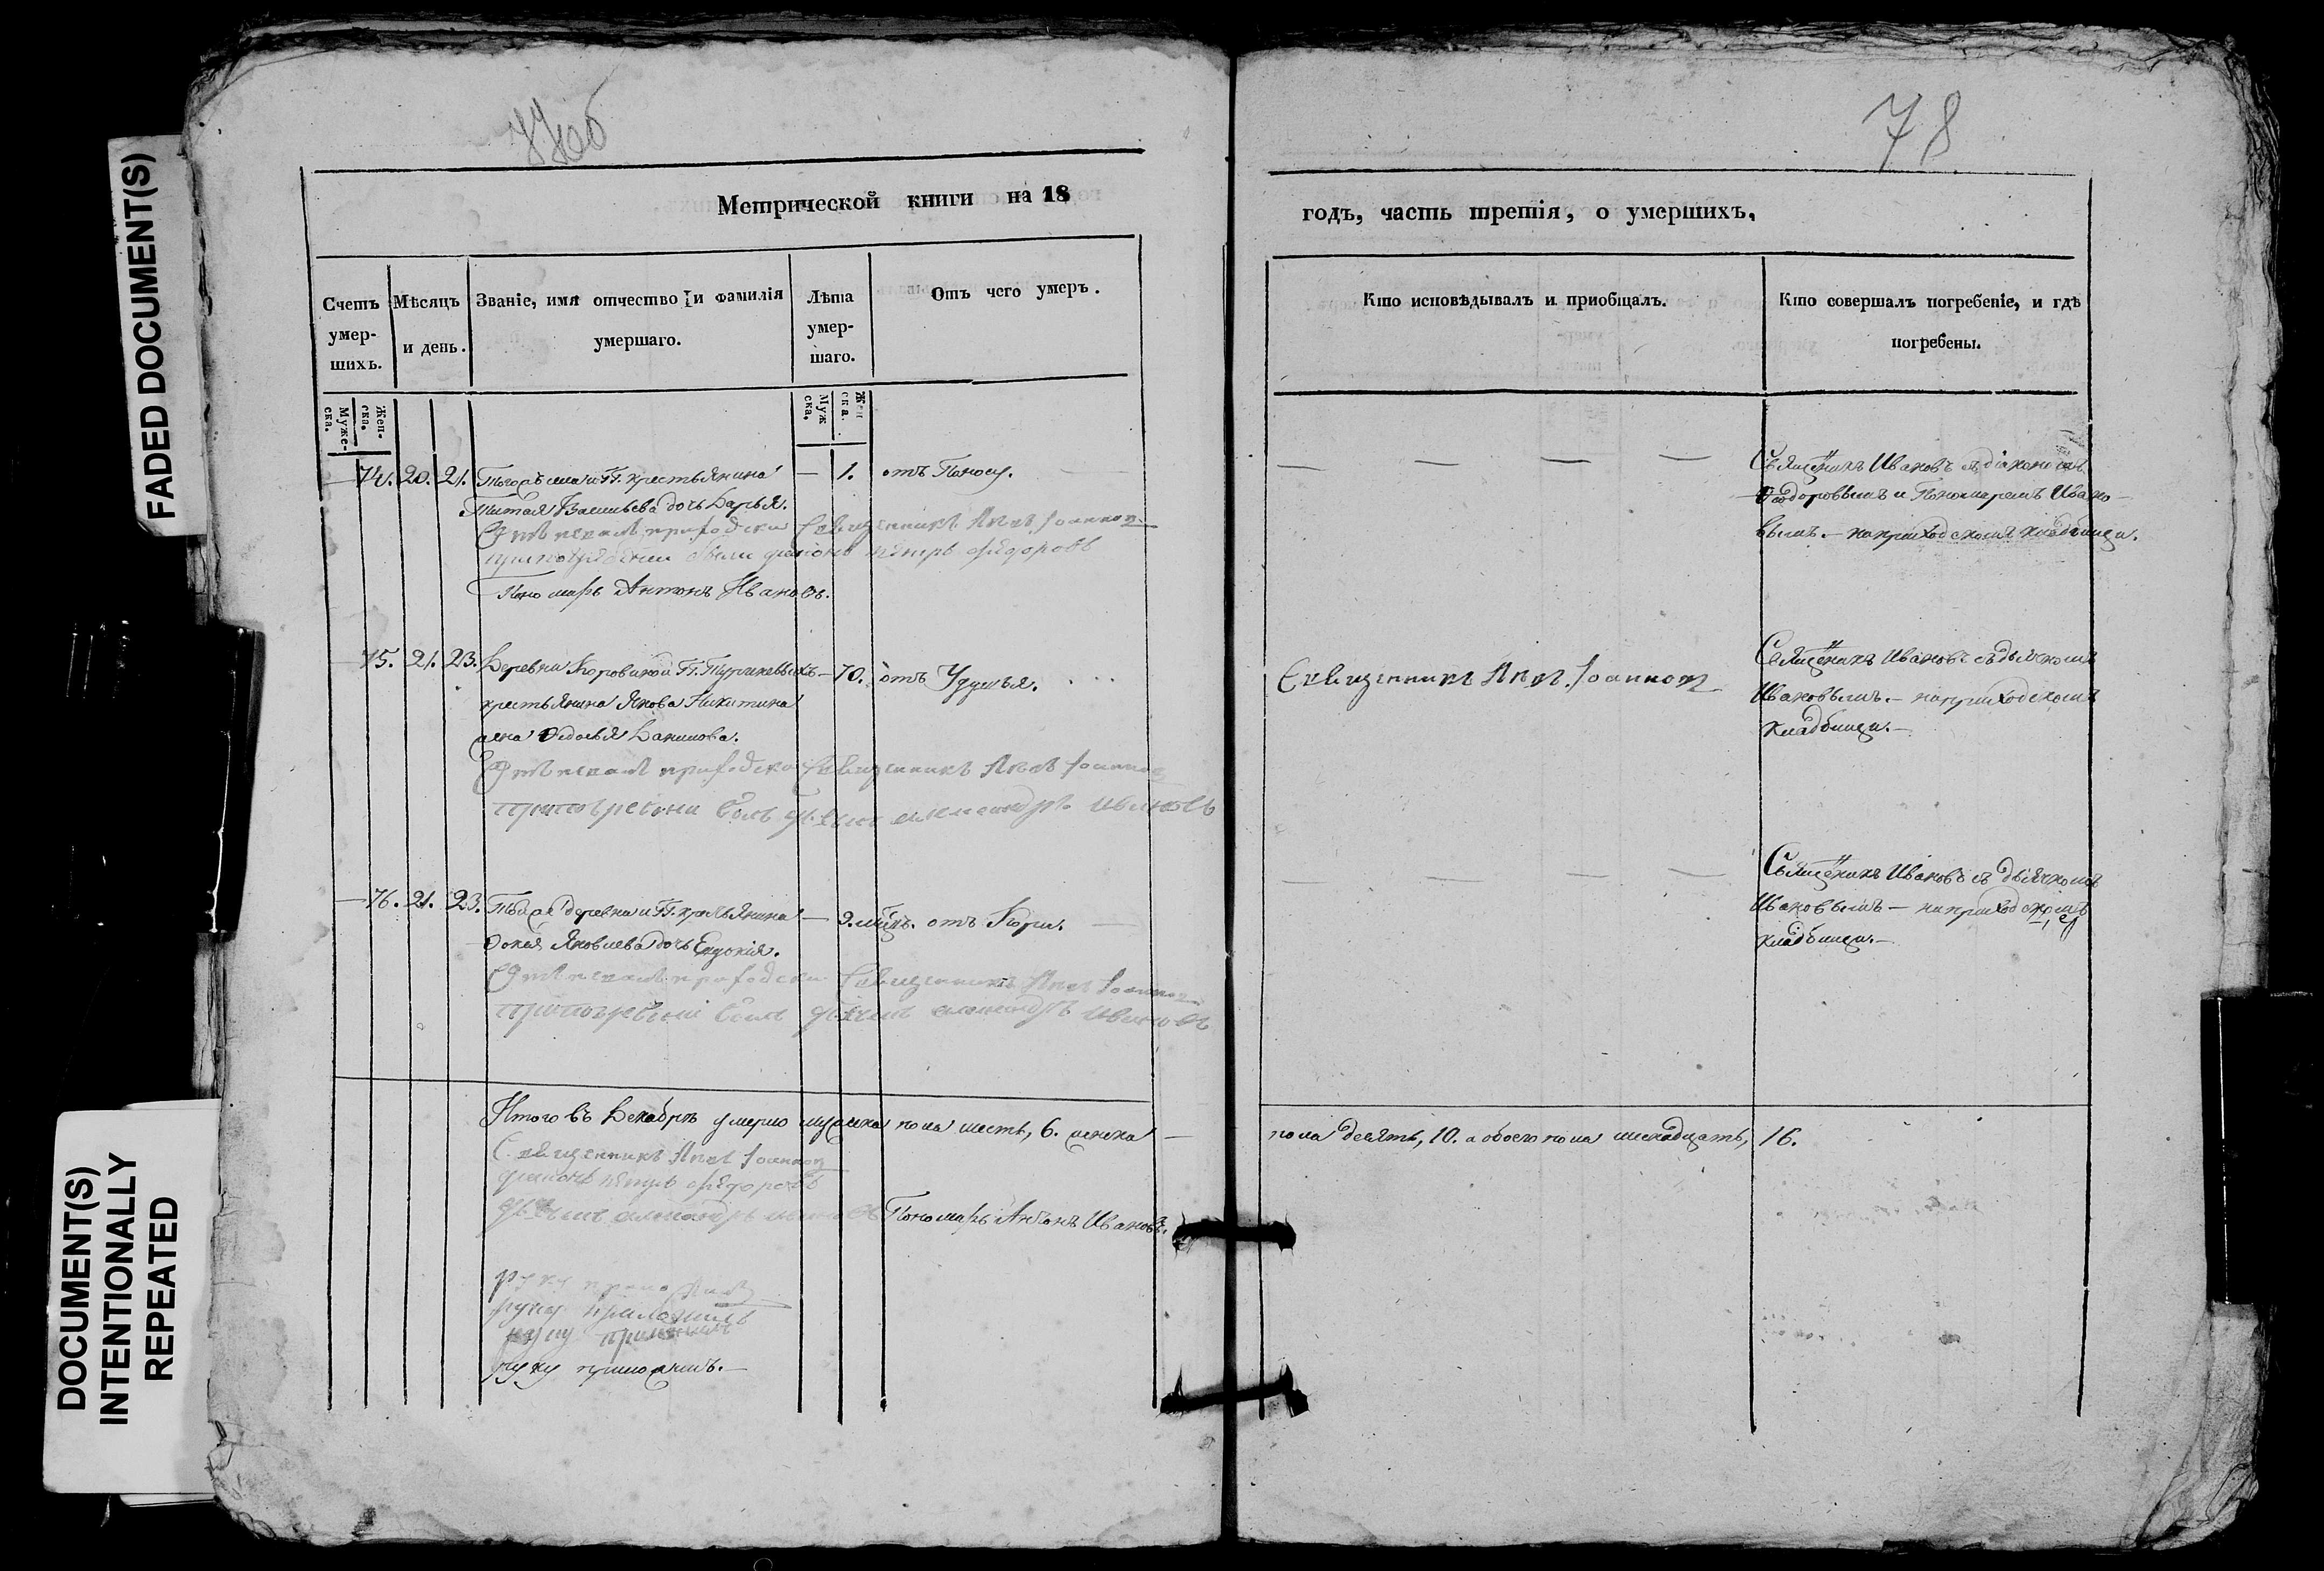 FADED DOCUMENT(S)
DOCUMENT(S)
INTENTIONALLY
REPEATED
78
Метрической книги на 18
годъ, часть третія, о умершихъ.
Счетъ умер-шихъ.
Мѣсяцъ и день.
Званіе, имя отчество и фамилія умершаго.
Лѣта умер-шаго.
Отъ чего умеръ.
Кто исповѣдывалъ и пріобщалъ.
Кто совершалъ погребеніе, и гдѣ погребены.
Муже-ска.
Жен-ска.
Муж ска.
Жен ска.
74. 20. 21. крестьянина — 1. отъ Поносу.
Васильева дочь Дарья.
Священникъ Іоаннов
діаконъ петръ Федоровъ
Пономарь Антонъ Ивановъ.
Священникъ Ивановъ съ діакономъ
Феодоровымъ и Пономаремъ Ивано-
вымъ. — на приходскомъ кладбищи.
75. 21. 23. Деревни Боровикой — 70. отъ Удушья.
крестьянина Якова Никитина
жена Федосья Данилова.
Отпевалъ приходски Священникъ Іоаннов
при погребени былъ дьячекъ александръ ивановъ
Священникъ Іоаннов
Священникъ Ивановъ съ дьячкомъ
Ивановымъ. — на приходскомъ
кладбищи. —
— 76. 21. 23. Той же деревни и крестьянина — 9. мѣцъ. отъ Кори.
Фокія Яковлева дочь Евдокія.
Отпевалъ приходски Священникъ Іоаннов
при погребени былъ дьячекъ александръ ивановъ
Священникъ Ивановъ съ дьячкомъ
Ивановымъ — на приходскомъ
кладбищи. —
Итого въ Декабрѣ умерло мужеска пола шесть, 6. женска —
пола десять, 10. а обоего пола шеснадцать, 16.
Священникъ Іоаннов
діаконъ петръ Федоровъ
дьячекъ александръ ивановъ Пономарь Антонъ Ивановъ.
руку приложилъ
руку приложилъ
руку приложилъ
руку приложилъ. —